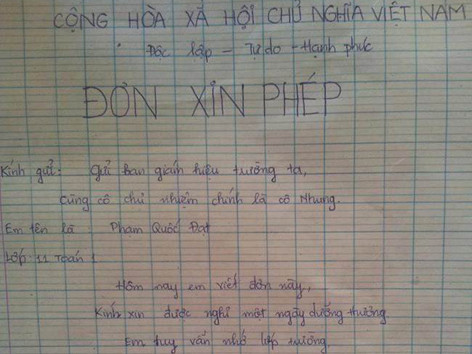 CỘNG HÒA XÃ HỘI CHỦ NGHĨA VIỆT NAM
Độc lập - Tự do - Hạnh phúc
ĐƠN XIN PHÉP
Kính gửi: Gửi ban giám hiệu trường ta,
Cùng cô chủ nhiệm chính là cô Nhung.
Em tên là : Phạm Quốc Đạt
Lớp: 11 Toán 1
Hôm nay em viết đơn này,
Kính xin được nghỉ một ngày dưỡng thương
Em tuy vẫn nhớ lớp trường